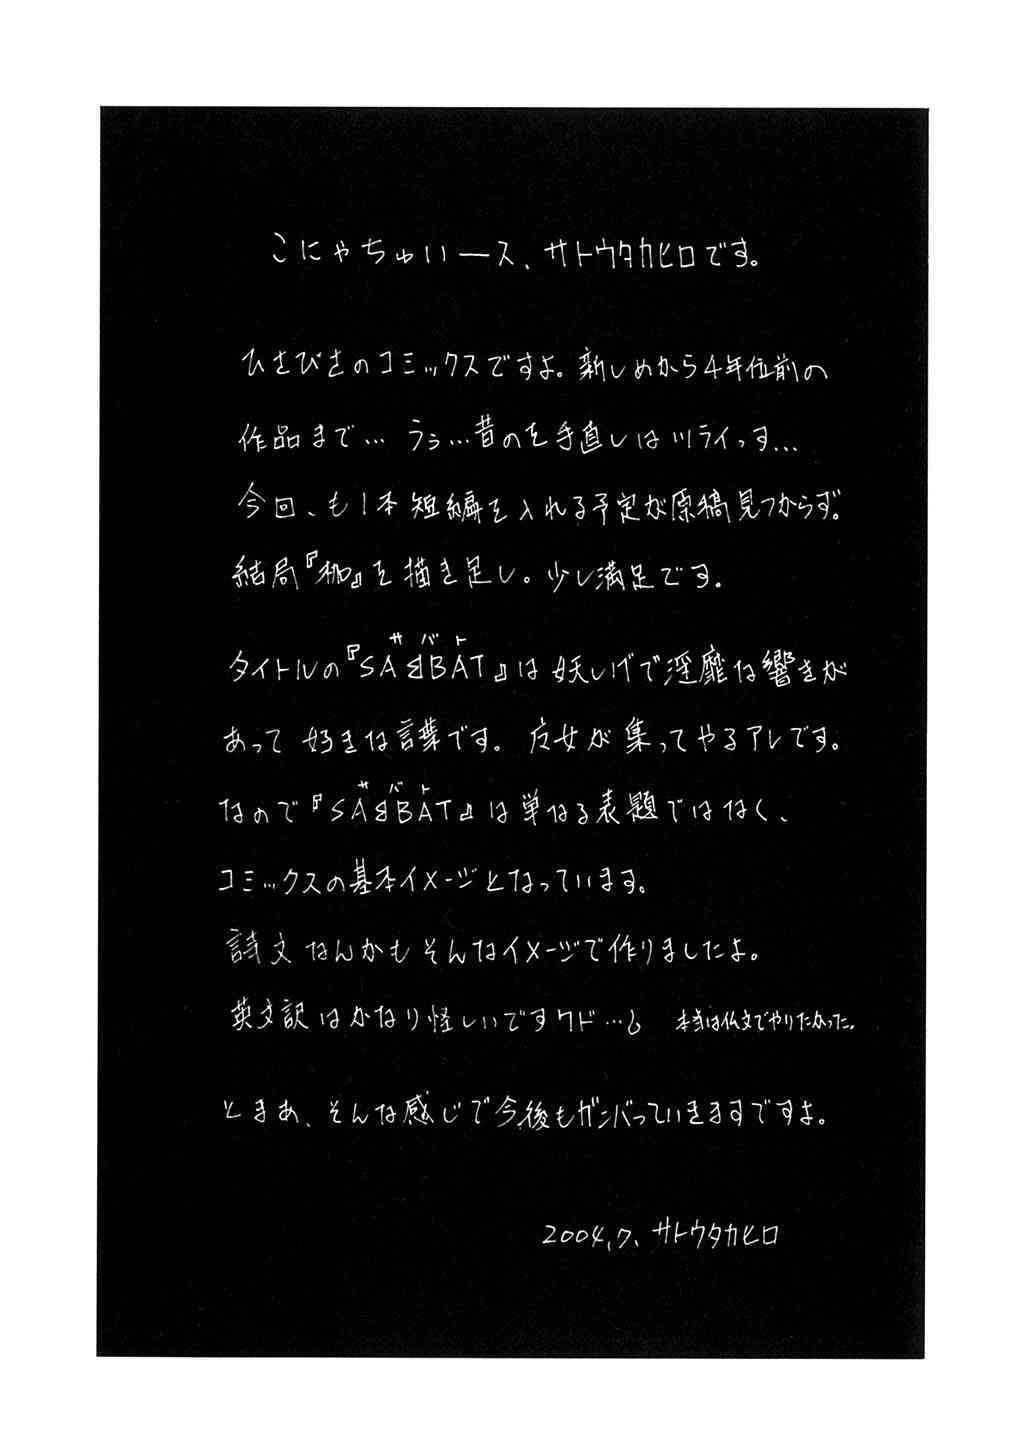 こにゃちゅいース、サトウタカヒロです。
ひさびさのコミックスですよ。新しめから4年位前の
作品まで… うぅ…昔のを手直しはツライっす…
今回、も1本短編を入れる予定が原稿見つからず。
結局『枷』を描き足し。少し満足です。
サバト
タイトルの『SABBAT』は妖しげで淫靡な響きが
あって好きな言葉です。魔女が集ってやるアレです。
サバト
なので『SABBAT』は単なる表題ではなく、
コミックスの基本イメージとなっています。
詩文なんかもそんなイメージで作りましたよ。
英文訳はかなり怪しいですケド…。 本当は仏文でやりたかった。
とまあ、そんな感じで今後もガンバっていきますですよ。
2004.7. サトウタカヒロ